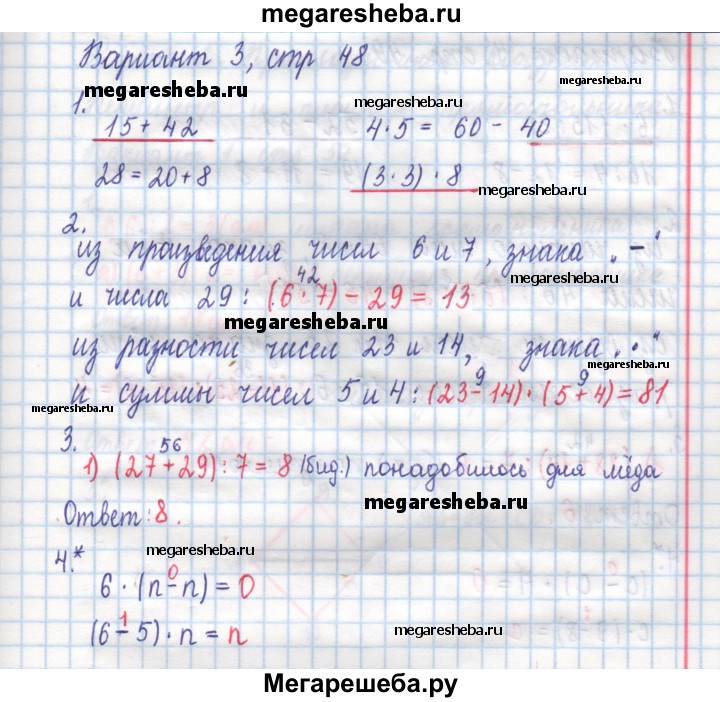 megaresheba.ru
Вариант 3, стр 48
megaresheba.ru
1. megaresheba.ru
megaresheba.ru
15 + 42 4 · 5 = 60 - 40
28 = 20 + 8 (3 · 3) · 8 megaresheba.ru
2.
из произведения чисел 6 и 7, знака „-“
megaresheba.ru
42
и числа 29: (6 · 7) - 29 = 13
megaresheba.ru
из разности чисел 23 и 14, знака „·“
megaresheba.ru
9 9
и суммы чисел 5 и 4: (23 - 14) · (5 + 4) = 81
megaresheba.ru
3.
56
1) (27 + 29) : 7 = 8 (бид.) понадобилось для мёда
megaresheba.ru
Ответ: 8.
megaresheba.ru
4.*
0
6 · (n - n) = 0
1
(6 - 5) · n = n
megaresheba.ru
Мегарешеба.ру